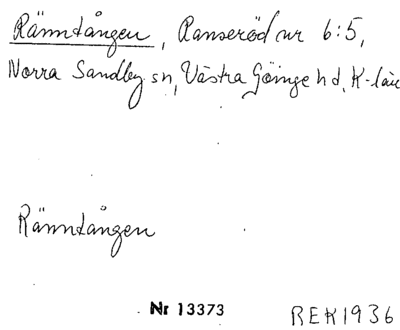 Ränntången, Ranseröd nr 6:5,
Norra Sandby sn, Västra Göinge hd, K-län
Ränntången
Nr 13373 REK1936